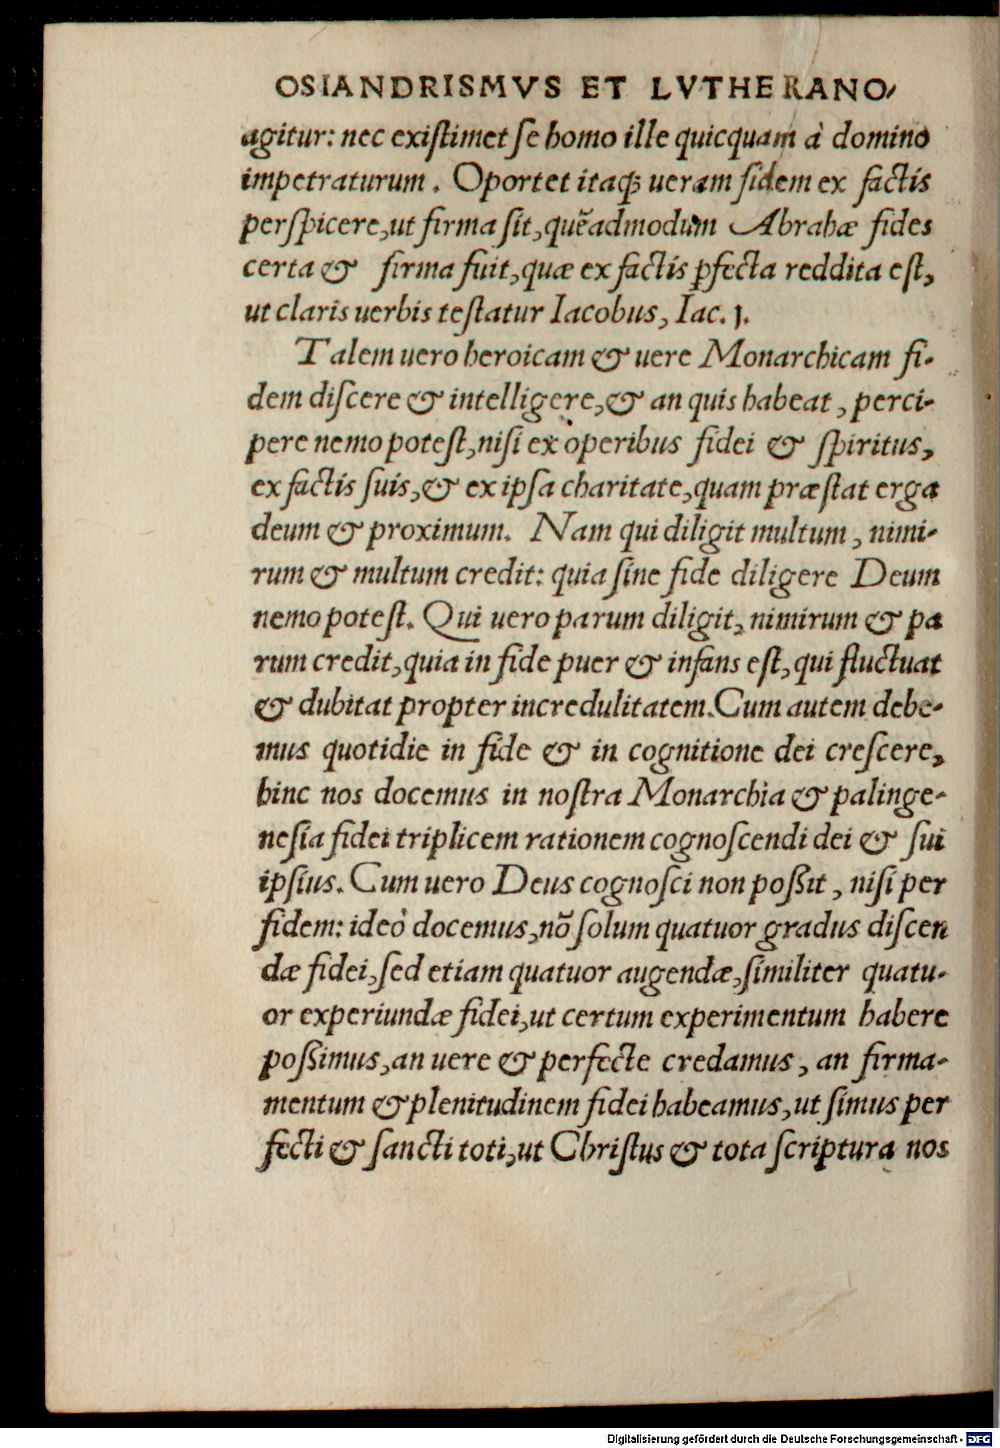 OSIANDRISMVS ET LVTHERANO⸗
agitur: nec exiſtimet ſe homo ille quicquam à domino
impetraturum. Oportet itaqꝫ ueram fidem ex factis
perſpicere, ut firma ſit, quẽadmodum Abrahæ fides
certa & firma fuit, quæ ex factis ꝑfecta reddita eſt,
ut claris uerbis teſtatur Iacobus, Iac. j.
Talem uero heroicam & uere Monarchicam fi-
dem diſcere & intelligere, & an quis habeat, perci-
pere nemo poteſt, niſi ex operibus fidei & ſpiritus,
ex factis ſuis, & ex ipſa charitate, quam præſtat erga
deum & proximum. Nam qui diligit multum, nimi-
rum & multum credit: quia ſine fide diligere Deum
nemo poteſt. Qui uero parum diligit, nimirum & pa
rum credit, quia in fide puer & infans eſt, qui fluctuat
& dubitat propter incredulitatem. Cum autem debe-
mus quotidie in fide & in cognitione dei creſcere,
hinc nos docemus in noſtra Monarchia & palinge-
neſia fidei triplicem rationem cognoſcendi dei & ſui
ipſius. Cum uero Deus cognoſci non poßit, niſi per
fidem: ideò docemus, nõ ſolum quatuor gradus diſcen
dæ fidei, ſed etiam quatuor augendæ, ſimiliter quatu-
or experiundæ fidei, ut certum experimentum habere
poßimus, an uere & perfecte credamus, an firma-
mentum & plenitudinem fidei habeamus, ut ſimus per
fecti & ſancti toti, ut Chriſtus & tota ſcriptura nos
Digitalisierung gefördert durch die Deutsche Forschungsgemeinschaft - DFG